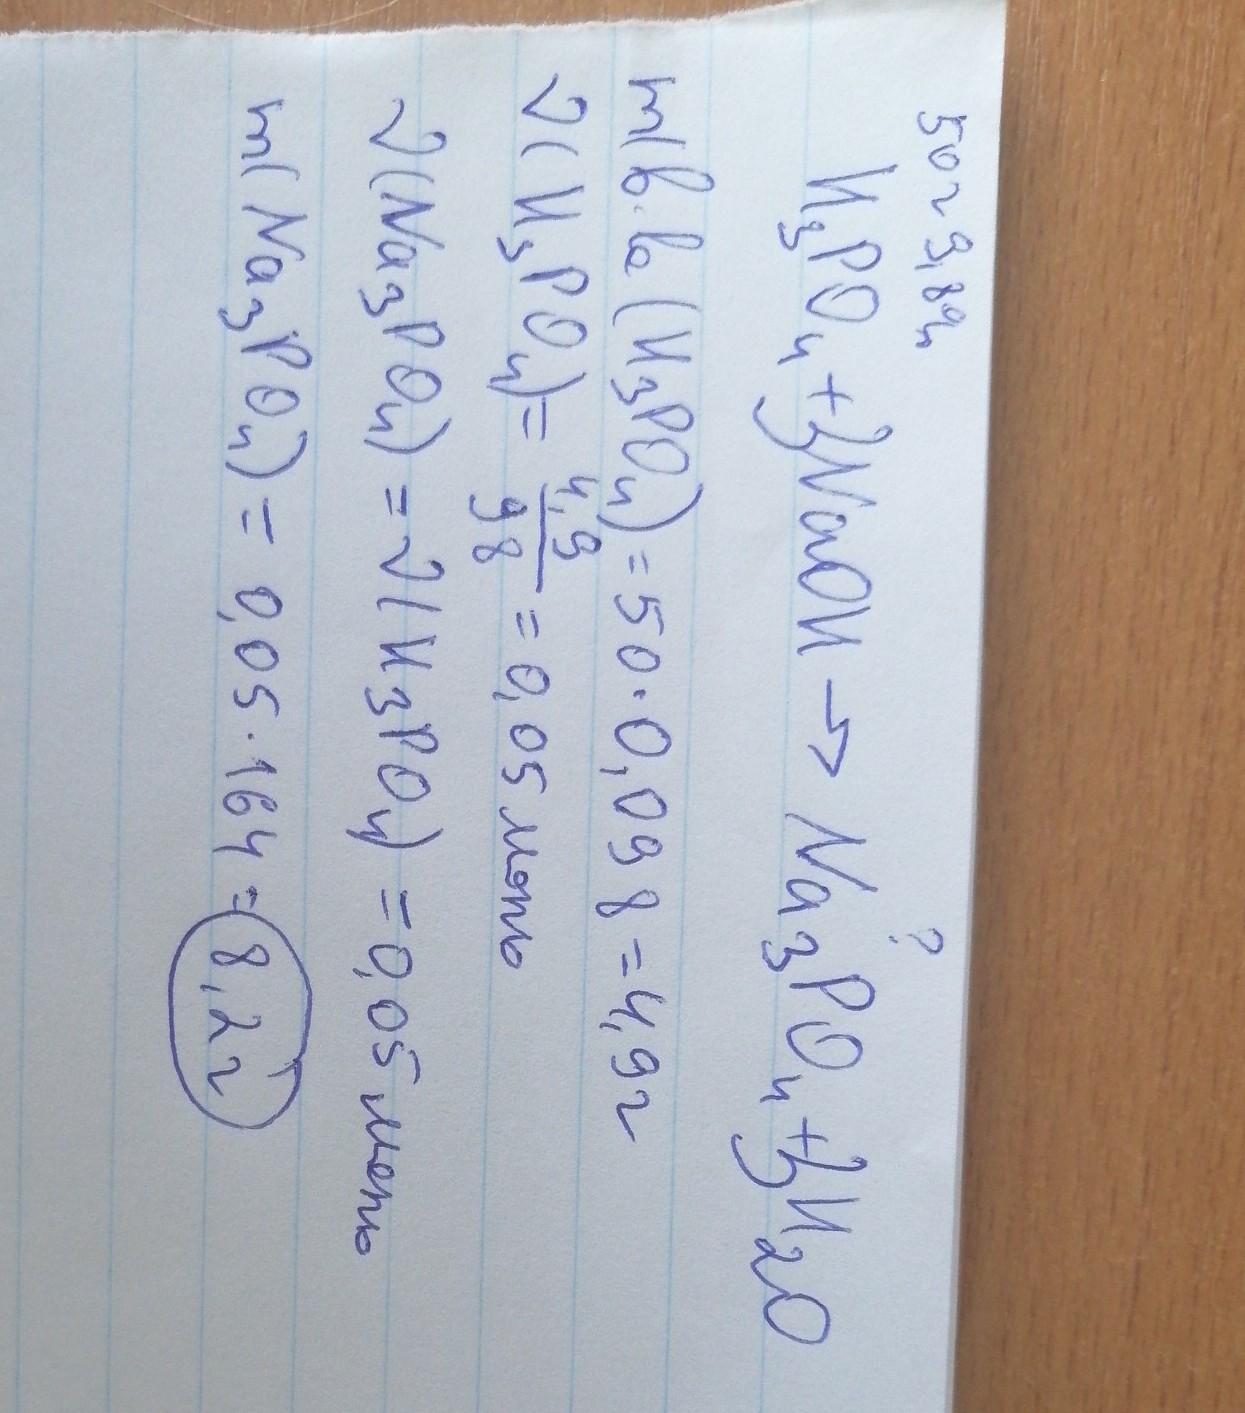 50г 9,8% ?
H₃PO₄ + 3NaOH → Na₃PO₄ + 3H₂O
m(в-ва (H₃PO₄) = 50·0,098 = 4,9г
ν(H₃PO₄) = 4,9/98 = 0,05 моль
ν(Na₃PO₄) = ν(H₃PO₄) = 0,05 моль
m(Na₃PO₄) = 0,05·164 = 8,2г